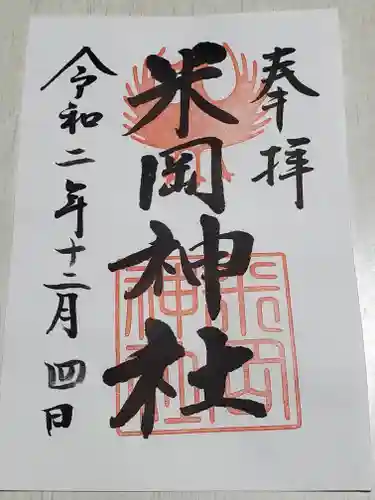 奉拝
米岡神社
令和二年十二月四日
米岡
神社